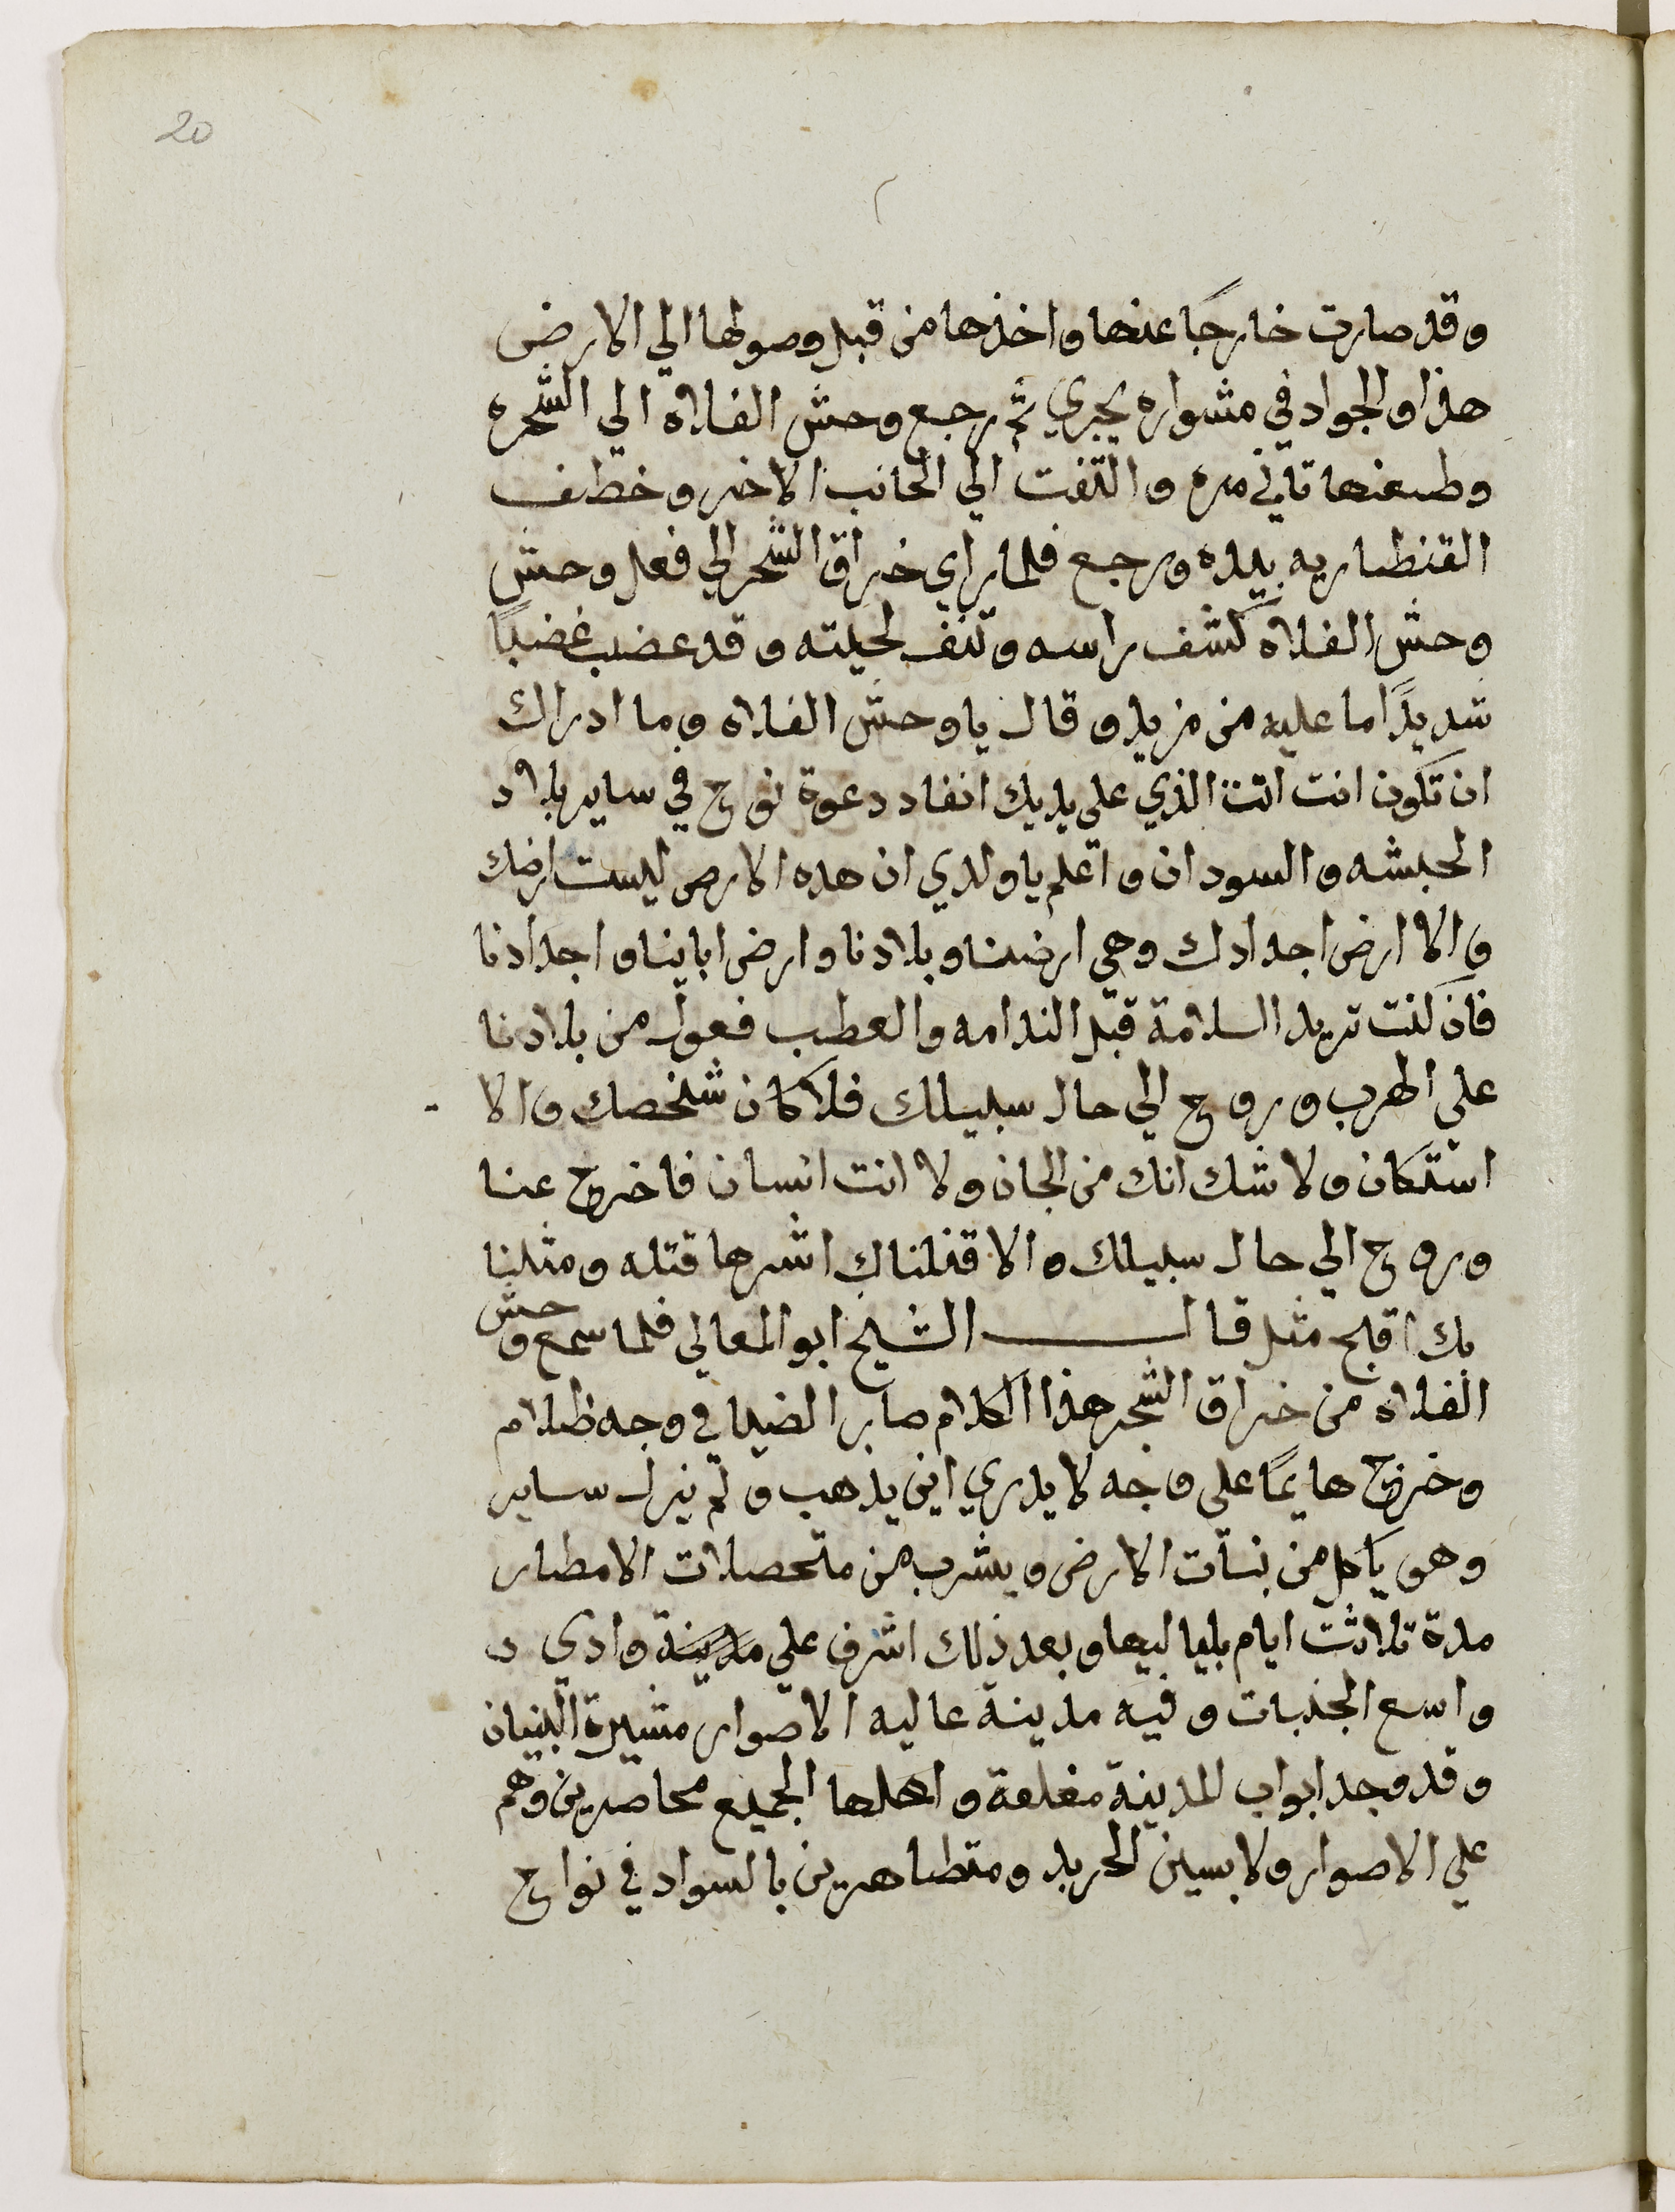 20
وقد صارت خارجًا عنها واخذها من قبل وصولها الي الارض
هذا والجواد في مشواره يجري ثم رجع وحش الفلاه الي الشجره
وطعنها تاني مره والتفت الي الجانب الاخر وخطف
القنطاريه بيده ورجع فلما راي خراق الشجر الي فعل وحش
وحش الفلاه كشف راسه ونتف لحيته وقد غضب غضبًا
شديدًا ما عليه من مزيد وقال يا وحش الفلاه وما ادراك
ان تكون انت انت الذي علي يديك انفاد دعوة نوح في ساير بلاد
الحبشه والسودان واعلم يا ولدي ان هده الارض ليست ارضك
والا ارض اجدادك وهي ارضنا وبلادنا وارض اباينا واجدادنا
فان كنت تريد السلامة قبل الندامه والعطب فعول من بلادنا
علي الهرب وروح الي حال سبيلك فلا كان شخصك والا
استكان ولا شك انك من الجان ولا انت انسان فاخرج عنا
وروح الي حال سبيلك والا قتلناك اشرها قتله ومثلنا
بك اقبح مثل قال الشيخ ابو المعالي فلما سمع وحش
الفلاه من خراق الشجر هذا الكلام صار الضيا في وجه ظلام
وخرج هايمًا علي وجه لا يدري اين يذهب ولم يزل ساير
وهو ياكل من نبات الارض ويشرب من متحصلات الامطار
مدة تلاثت ايام بلياليها وبعد ذلك اشرف علي مدينة وادي
واسع الجنبات وفيه مدينة عاليه الاصوار مشيرة البنيان
وقد وجد ابواب المدينة مغلقة واهلها الجميع محاصرين وهم
علي الاصوار ولابسين الحديد ومتظاهرين بالسواد في نواح